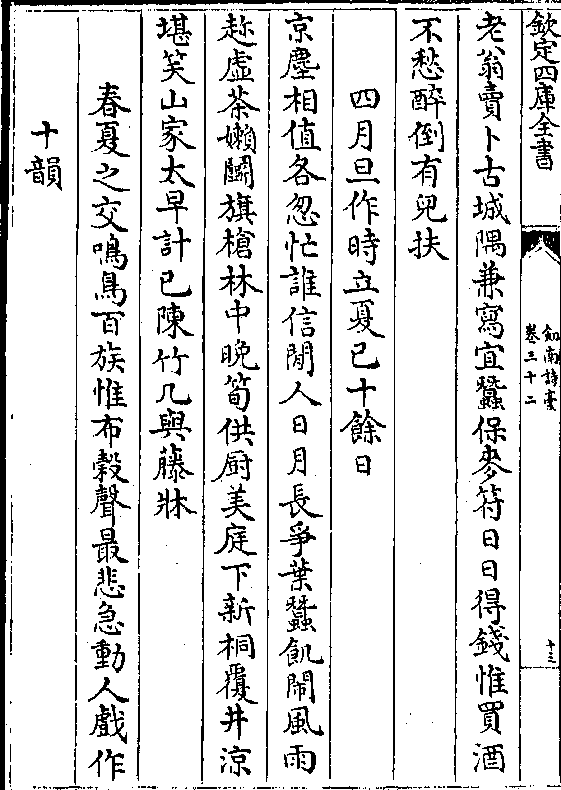 欽定四庫全書
劍南詩藁
卷三十二
十三
老翁賣卜古城隅兼寫宜蠶保麥符日日得錢惟買酒
不愁醉倒有兒扶
四月旦作時立夏已十餘日
京塵相值各怱忙誰信閒人日月長爭葉蠶飢鬧風雨
趂虛茶嬾鬭旗槍林中晚筍供厨美庭下新桐覆井涼
堪笑山家太早計已陳竹几與藤牀
春夏之交鳴鳥百族惟布穀聲最悲急動人戲作
十韻